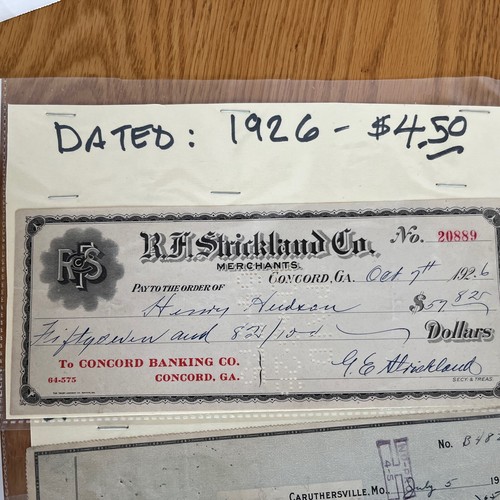 DATED: 1926 - $4.50
R.F. Strickland Co. No. 20889
MERCHANTS.
RFS
CONCORD, GA. Oct 7th 1926
PAY TO THE ORDER OF
Henry Hudson $57 82
Fiftyseven and 82/100 Dollars
To CONCORD BANKING CO.
64-575 CONCORD, GA.
G.E. Strickland
SECY. & TREAS.
No. B482
CARUTHERSVILLE, MO. July 5 19